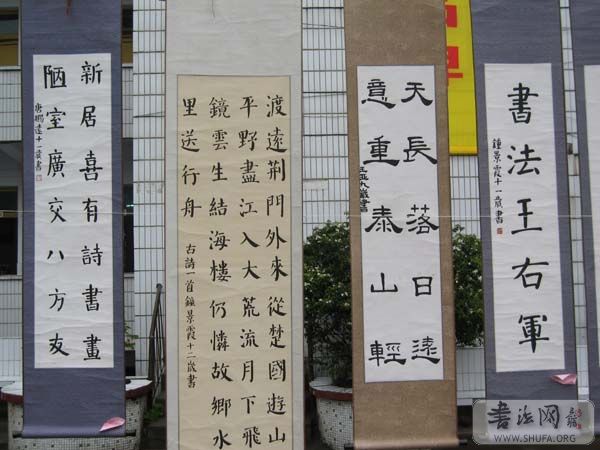 新居喜有詩書畫
陋室廣交八方友
十一歲書
渡遠荊門外來從楚國遊山
平野盡江入大荒流月下飛
鏡雲生結海樓仍憐故鄉水
里送行舟
古詩一首鍾景霞十二歲書
天長落日遠
意重泰山輕
書法王右軍
鍾景霞十一歲書
书法网
WWW.SHUFA.ORG